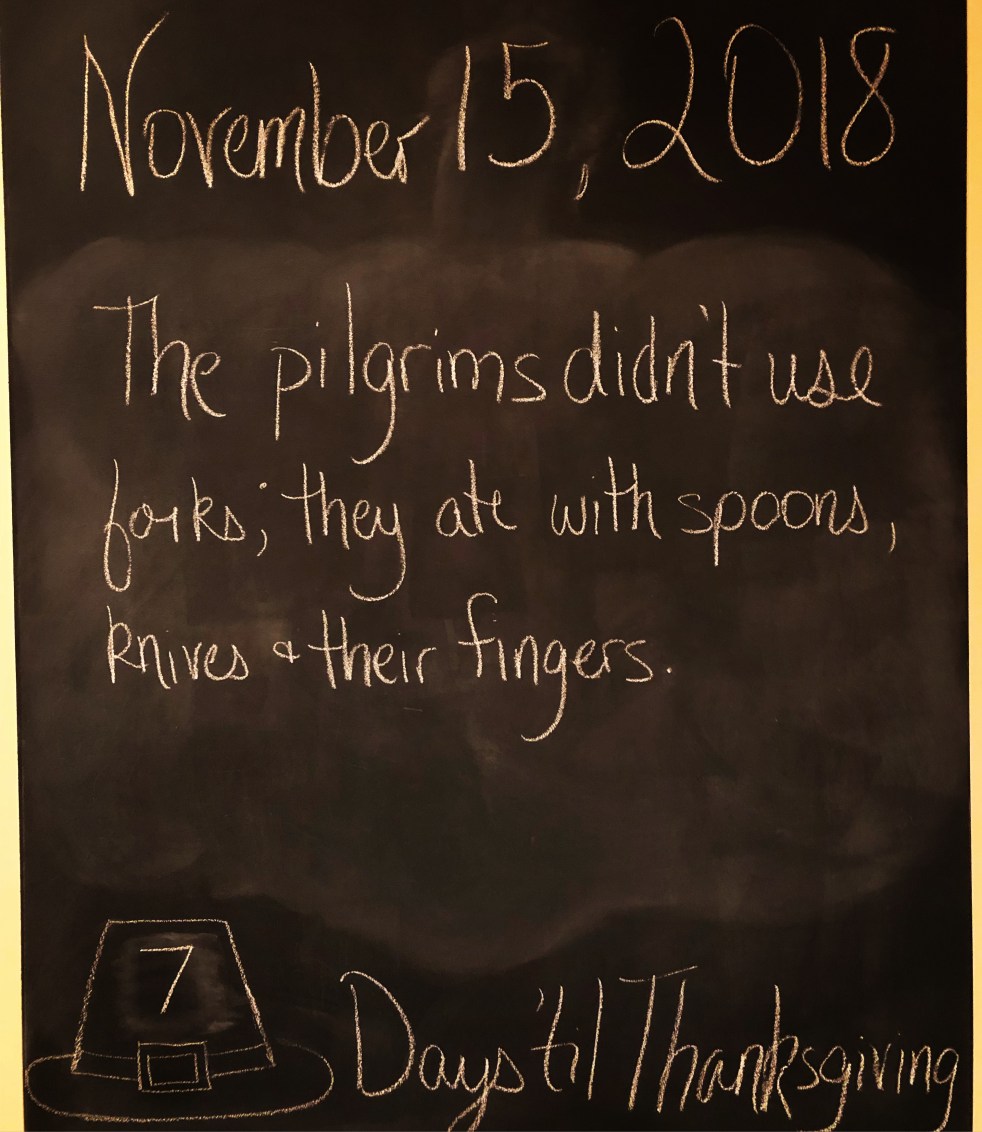 November 15, 2018
The pilgrims didn't use
forks; they ate with spoons,
knives & their fingers.
7
Days 'til Thanksgiving